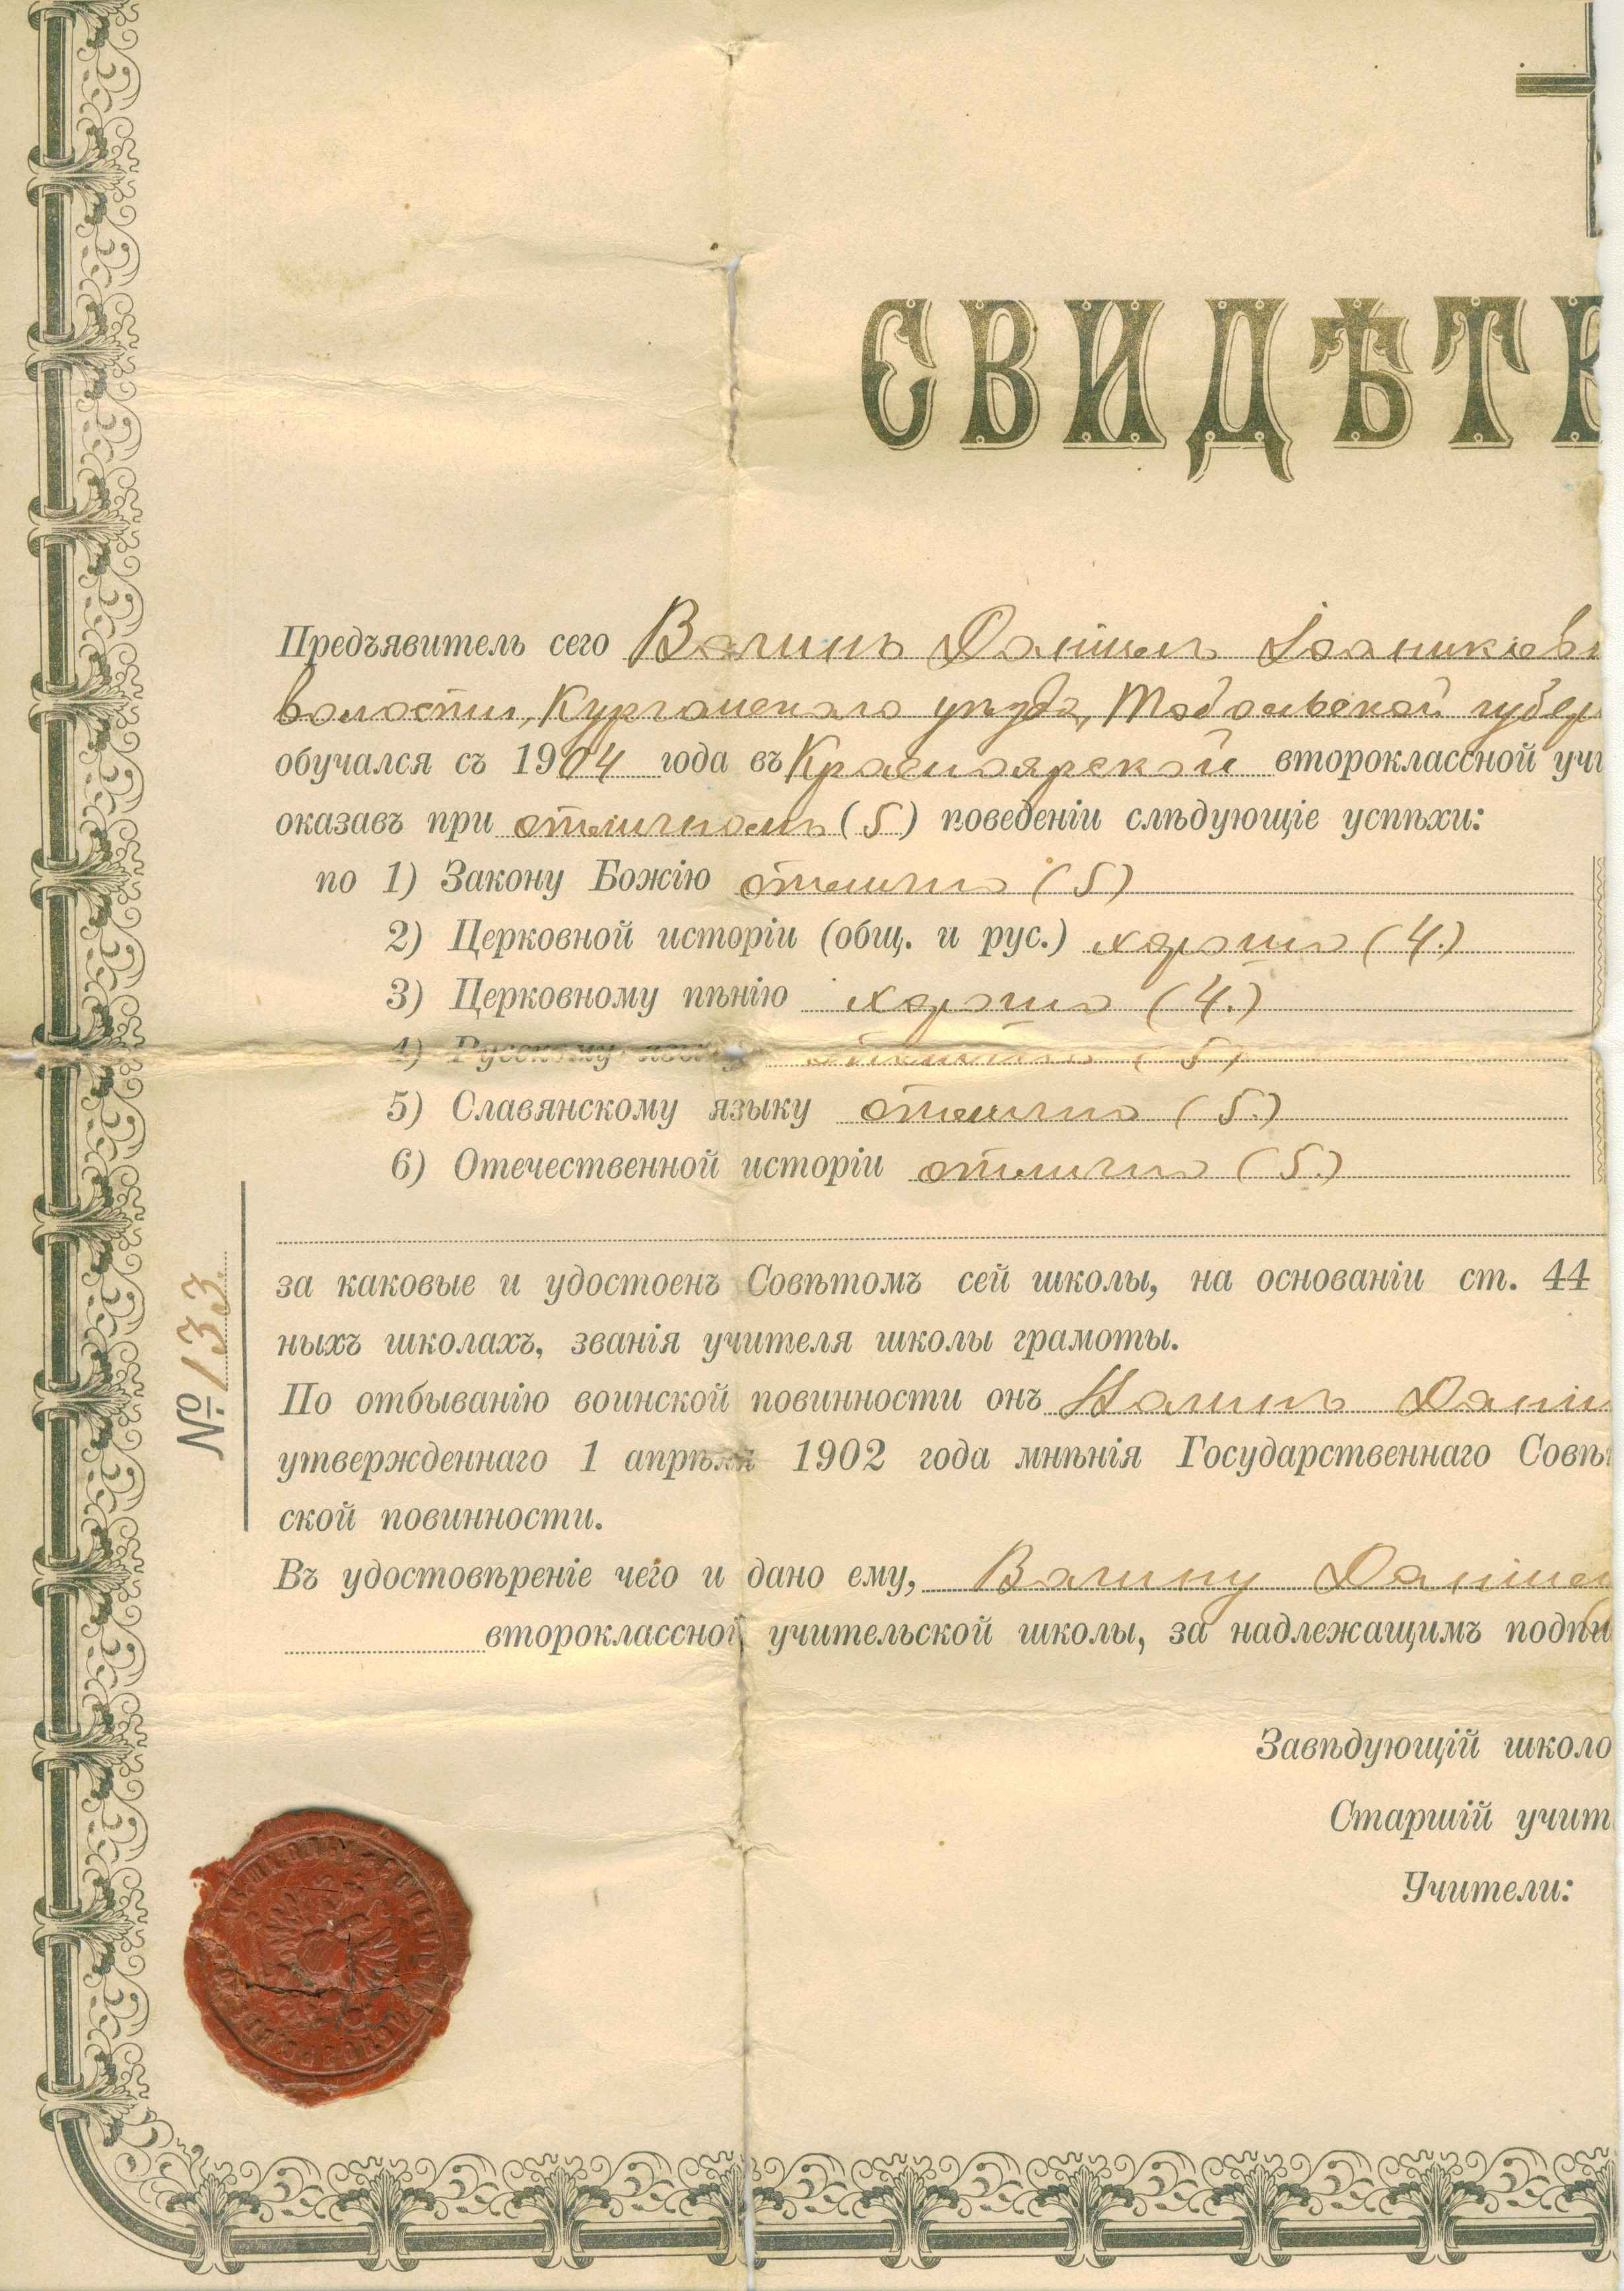 СВИДѢТЕ
Предъявитель сего Вагинъ Данiилъ Iоаникiев
волости, Курганскаго уѣзда, Тобольской губер
обучался съ 1904 года въ Красноярской второклассной учи
оказавъ при отличномъ (5) поведенiи слѣдующiе успѣхи:
по 1) Закону Божiю отлично (5)
2) Церковной исторiи (общ. и рус.) хорошо (4.)
3) Церковному пѣнiю хорошо (4.)
4) Русскому языку отлично (5)
5) Славянскому языку отлично (5.)
6) Отечественной исторiи отлично (5.)
за каковые и удостоенъ Совѣтомъ сей школы, на основанiи ст. 44
ныхъ школахъ, званiя учителя школы грамоты.
По отбыванiю воинской повинности онъ Вагинъ Данiи
утвержденнаго 1 апрѣля 1902 года мнѣнiя Государственнаго Совѣ
ской повинности.
Въ удостовѣренiе чего и дано ему, Вагину Данiил
второклассной учительской школы, за надлежащимъ подпи
№ 133.
Завѣдующiй школо
Старшiй учит
Учители: